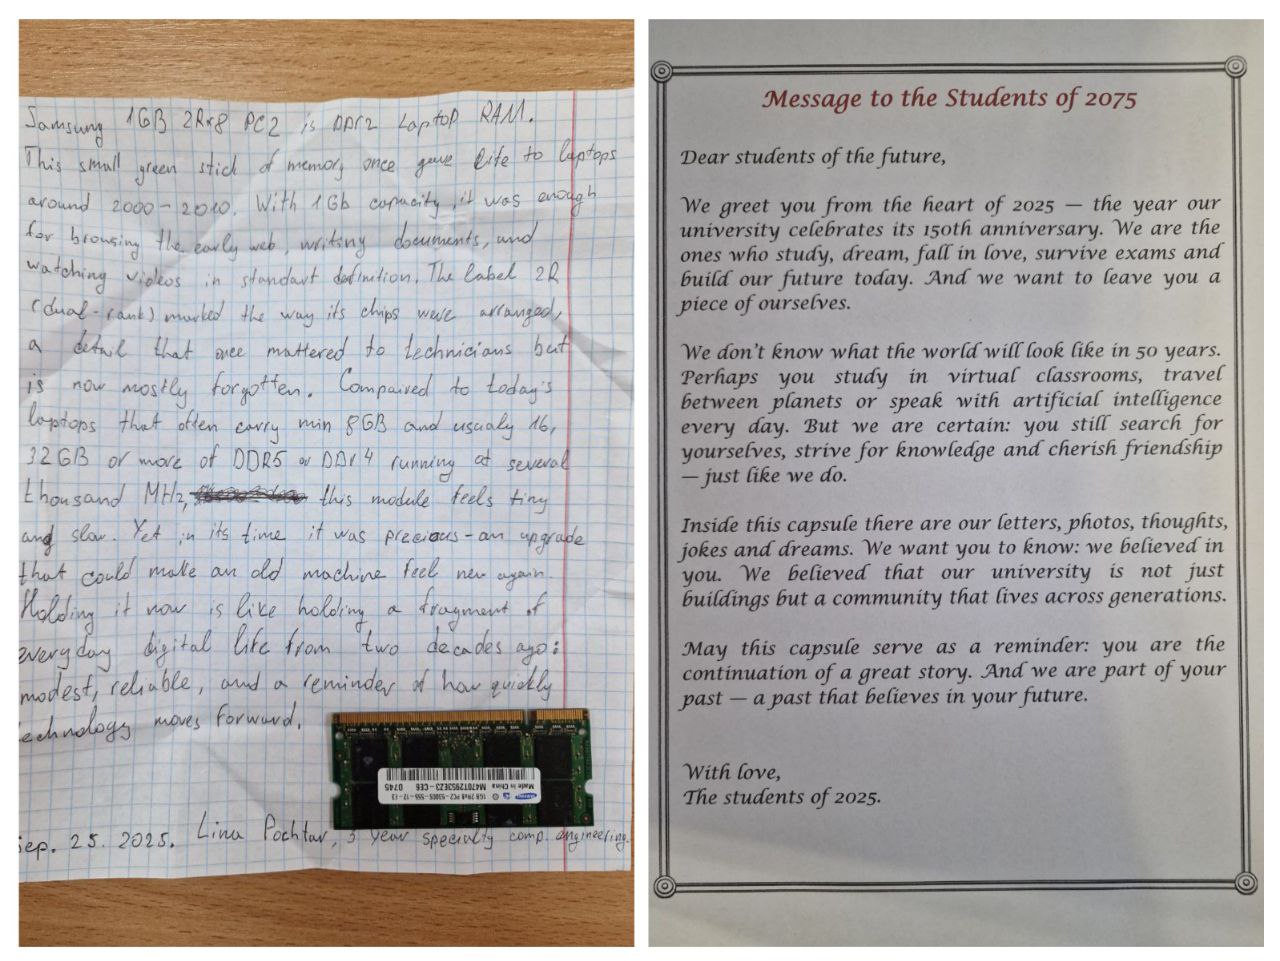 Samsung 1GB 2Rx8 PC2 is DDr2 Laptop RAM.
This small green stick of memory once gave life to laptops
around 2000-2010. With 1Gb capacity, it was enough
for browsing the early web, writing documents, and
watching videos in standart definition. The label 2R
(dual-rank) marked the way its chips were arranged,
a detail that once mattered to technicians but
is now mostly forgotten. Compaired to today's
laptops that often carry min 8GB and usualy 16,
32GB or more of DDR5 or DDr4 running at several
thousand MHz, this module feels tiny
and slow. Yet in its time it was precious-an upgrade
that could make an old machine feel new again.
Holding it now is like holding a fragment of
everyday digital life from two decades ago:
modest, reliable, and a reminder of how quickly
technology moves forward.
SAMSUNG
1GB 2Rx8 PC2-5300S-555-12-E3
M470T2953EZ3-CE6 0745
Made in China
Sep. 25. 2025. Lina Pochtar, 3 year specialty comp. engineering.
Message to the Students of 2075
Dear students of the future,
We greet you from the heart of 2025 — the year our
university celebrates its 150th anniversary. We are the
ones who study, dream, fall in love, survive exams and
build our future today. And we want to leave you a
piece of ourselves.
We don't know what the world will look like in 50 years.
Perhaps you study in virtual classrooms, travel
between planets or speak with artificial intelligence
every day. But we are certain: you still search for
yourselves, strive for knowledge and cherish friendship
— just like we do.
Inside this capsule there are our letters, photos, thoughts,
jokes and dreams. We want you to know: we believed in
you. We believed that our university is not just
buildings but a community that lives across generations.
May this capsule serve as a reminder: you are the
continuation of a great story. And we are part of your
past — a past that believes in your future.
With love,
The students of 2025.